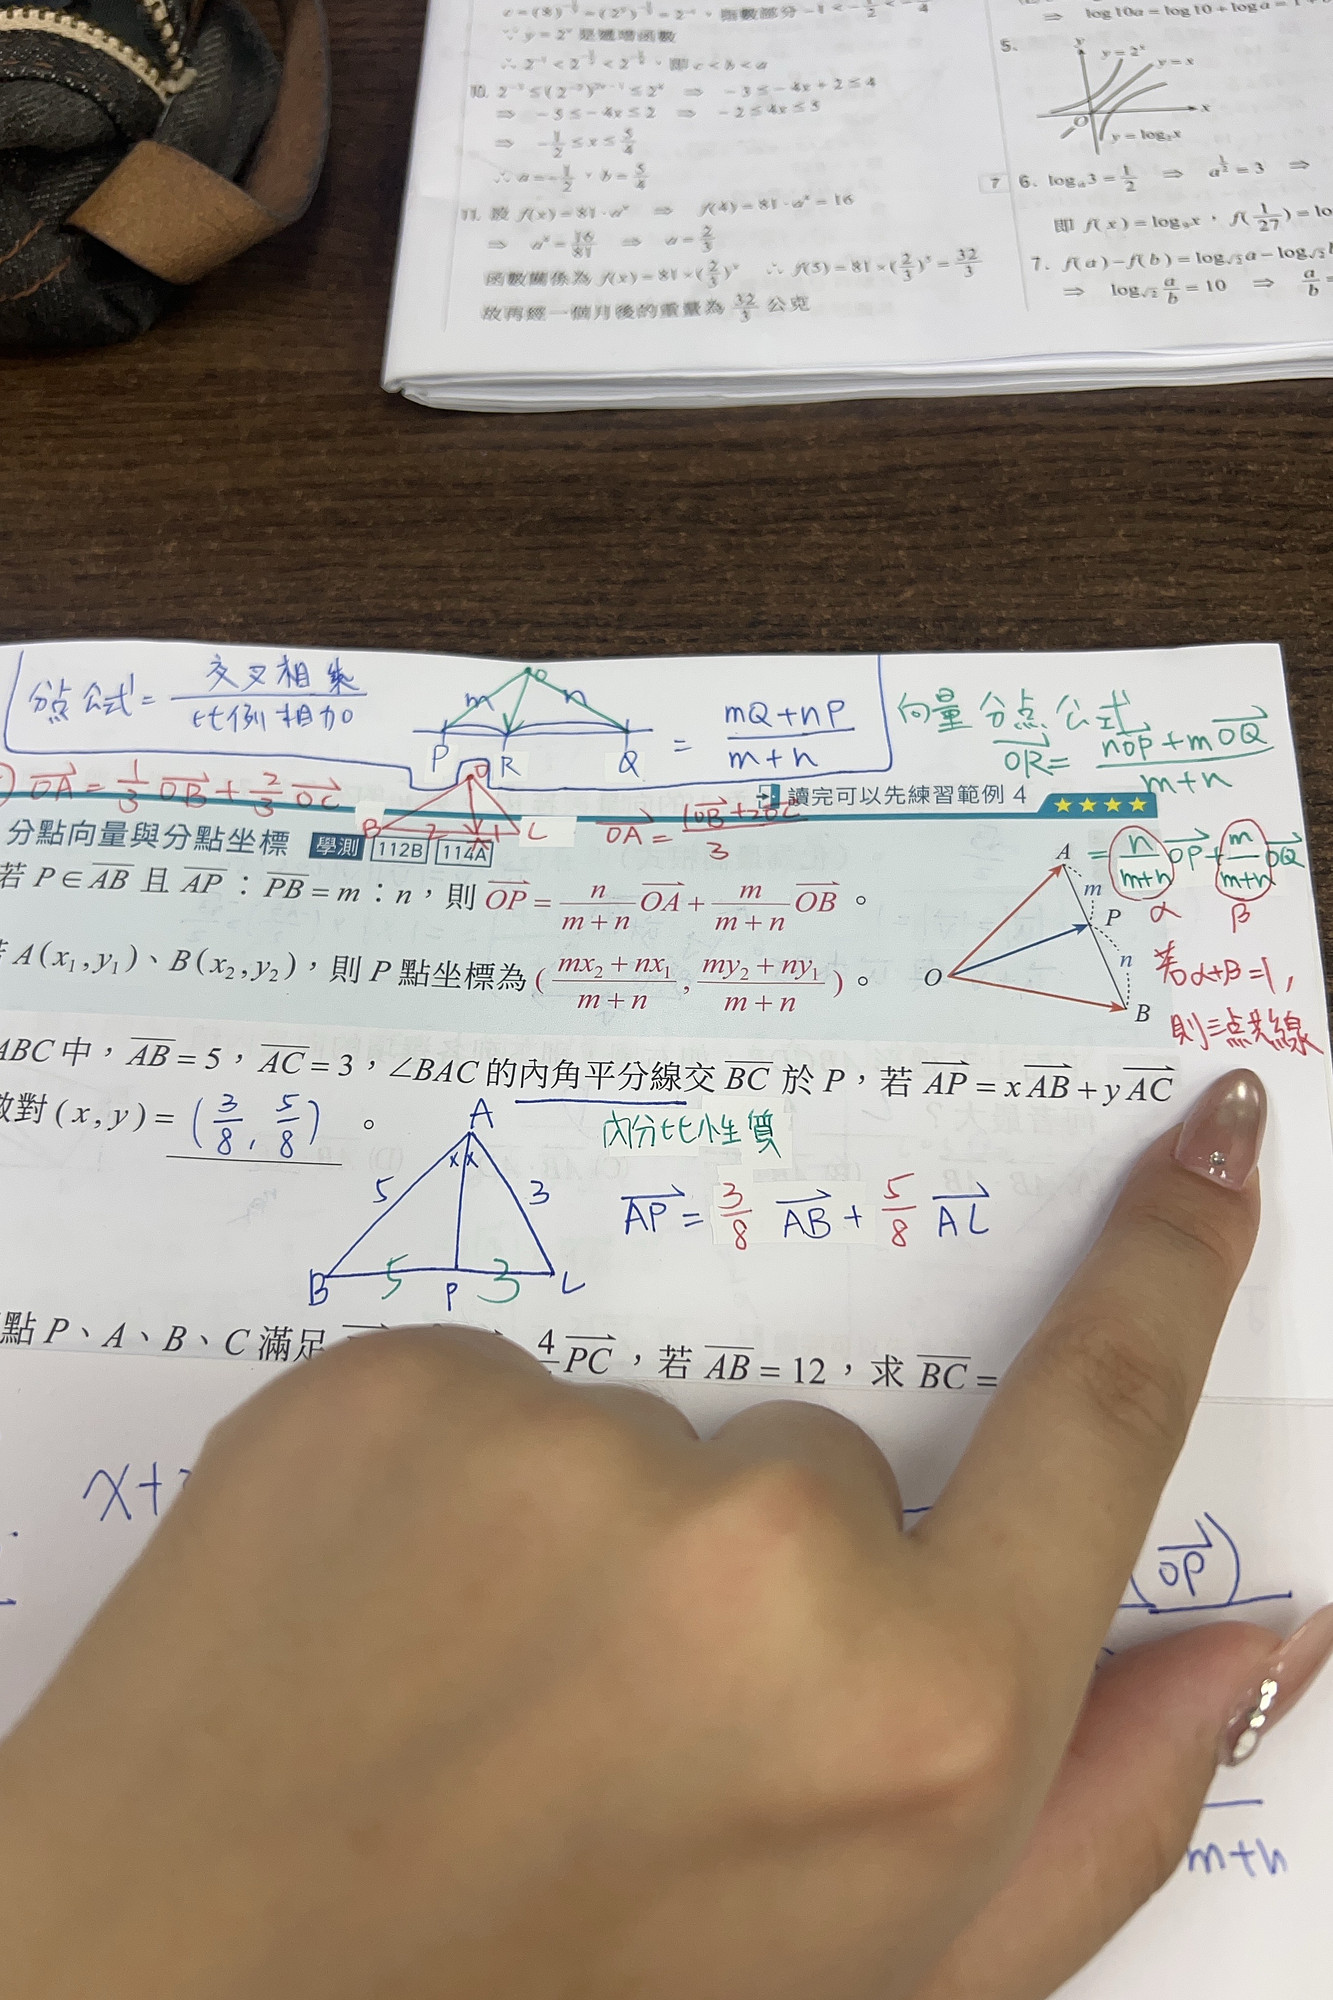 ∵ y = 2ˣ 是遞增函數
10. 2⁻³ ≤ (2⁻²)²ˣ⁻¹ ≤ 2⁴ ⇒ -3 ≤ -4x + 2 ≤ 4
⇒ -5 ≤ -4x ≤ 2 ⇒ -2 ≤ 4x ≤ 5
⇒ -1/2 ≤ x ≤ 5/4
∴ a = -1/2,b = 5/4
11. 設 f(x) = 81·aˣ ⇒ f(4) = 81·a⁴ = 16
⇒ a⁴ = 16/81 ⇒ a = 2/3
函數關係為 f(x) = 81 × (2/3)ˣ ∴ f(5) = 81 × (2/3)⁵ = 32/3
故再經一個月後的重量為 32/3 公克
⇒ log10a = log10 + loga = 1 +
5.
y
y = 2ˣ
y = x
x
O
y = log₂x
7
6. logₐ3 = 1/2 ⇒ a^(1/2) = 3 ⇒
即 f(x) = log₉x,f(1/27) = lo
7. f(a) - f(b) = log√2 a - log√2
⇒ log√2 a/b = 10 ⇒ a/b =
分点公式 = 交叉相乘/比例相加
m n
P R Q
= (mQ+nP)/(m+n)
向量分点公式
OR⃗ = (nOP⃗ + mOQ⃗)/(m+n)
= n/(m+n) OP⃗ + m/(m+n) OQ⃗
α β
若α+β=1,
則三点共線
OA⃗ = 1/3 OB⃗ + 2/3 OC⃗
O
B 2 A 1 C
OA⃗ = (1OB⃗ + 2OC⃗)/3
讀完可以先練習範例 4 ★★★★
分點向量與分點坐標 學測 112B 114A
若 P ∈ AB 且 AP:PB = m:n,則 OP⃗ = n/(m+n) OA⃗ + m/(m+n) OB⃗。
A(x₁, y₁)、B(x₂, y₂),則 P 點坐標為 ((mx₂ + nx₁)/(m+n), (my₂ + ny₁)/(m+n))。
A
m
P
n
O
B
ABC 中,AB = 5,AC = 3,∠BAC 的內角平分線交 BC 於 P,若 AP⃗ = xAB⃗ + yAC⃗
數對 (x, y) = (3/8, 5/8)。
內分比性質
A
x x
5 3
B 5 P 3 C
AP⃗ = 3/8 AB⃗ + 5/8 AC⃗
點 P、A、B、C 滿足
4 PC⃗,若 AB = 12,求 BC =
x+
(OP⃗)
m+n